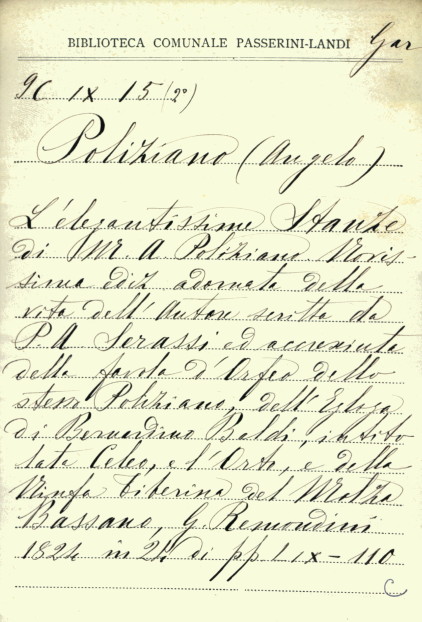 BIBLIOTECA COMUNALE PASSERINI-LANDI Gar
9C IX 15 (2º)
Poliziano (Angelo)
L'elegantissime Stanze
di M. A Poliziano Novis-
sima ediz adornata della
vita dell'Autore scritta da
P A Serassi ed accresciuta
della favola d'Orfeo dello
stesso Poliziano, dell'Egloga
di Bernardino Baldi, intito
lata Celeo, e l'Orto, e della
Ninfa Tiberina del Molza
Bassano, G. Remondini
1824 in 24 di pp LIX-110
C